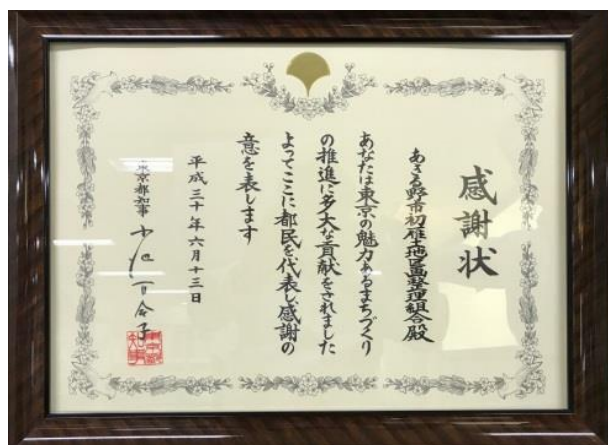 感謝状
あきる野市初雁土地区画整理組合殿
あなたは東京の魅力あるまちづくり
の推進に多大な貢献をされました
よってここに都民を代表し感謝の
意を表します
平成三十年六月十三日
東京都知事 小池百合子